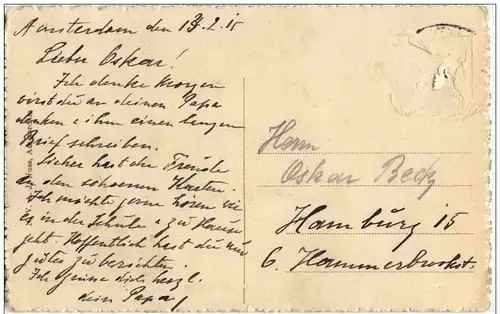 Amsterdam den 13.2.15
Lieber Oskar!
Ich denke Morgen
wirst du an deinen Papa
denken & ihm einen langen
Brief schreiben.
Sicher hast du Freude
an den schoenen Karten.
Ich möchte gerne hören wie
es in der Schule & zu Hause
geht. Hoffentlich hast du nur
gutes zu berichten.
Ich grüsse dich herzl.
dein Papa
Herrn
Oskar Beck
Hamburg 15
6. Hammerbrookst.